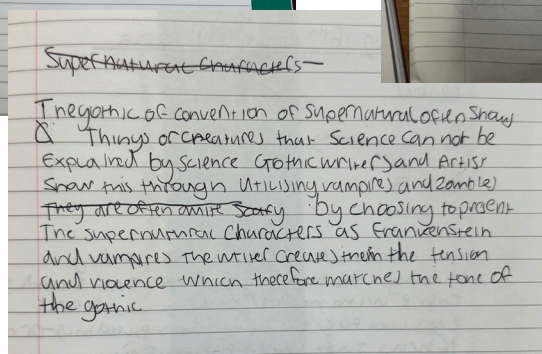 Supernatural Characters—
The gothic of convention of supernatural often shows
Things or creatures that science can not be
Explained by science Gothic writers and Artist
Show this through utilising vampires and zombies
They are often quite scary by choosing to present
The supernatural characters as Frankenstein
and vampires the writer creates the tension
and violence which therefore matches the tone of
the gothic